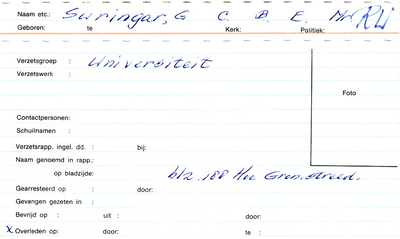 Naam etc.: Suringar, G C. B. E. Mr KW
Geboren: te Kerk: Politiek:
Verzetsgroep : Universiteit
Verzetswerk :
Foto
Contactpersonen:
Schuilnamen :
Verzetsrapp. ingel. dd. : bij:
Naam genoemd in rapp.:
op bladzijde: blz. 188 Hoe Gron. streed.
Gearresteerd op : door:
Gevangen gezeten in :
Bevrijd op : uit : door:
x Overleden op: door: te :